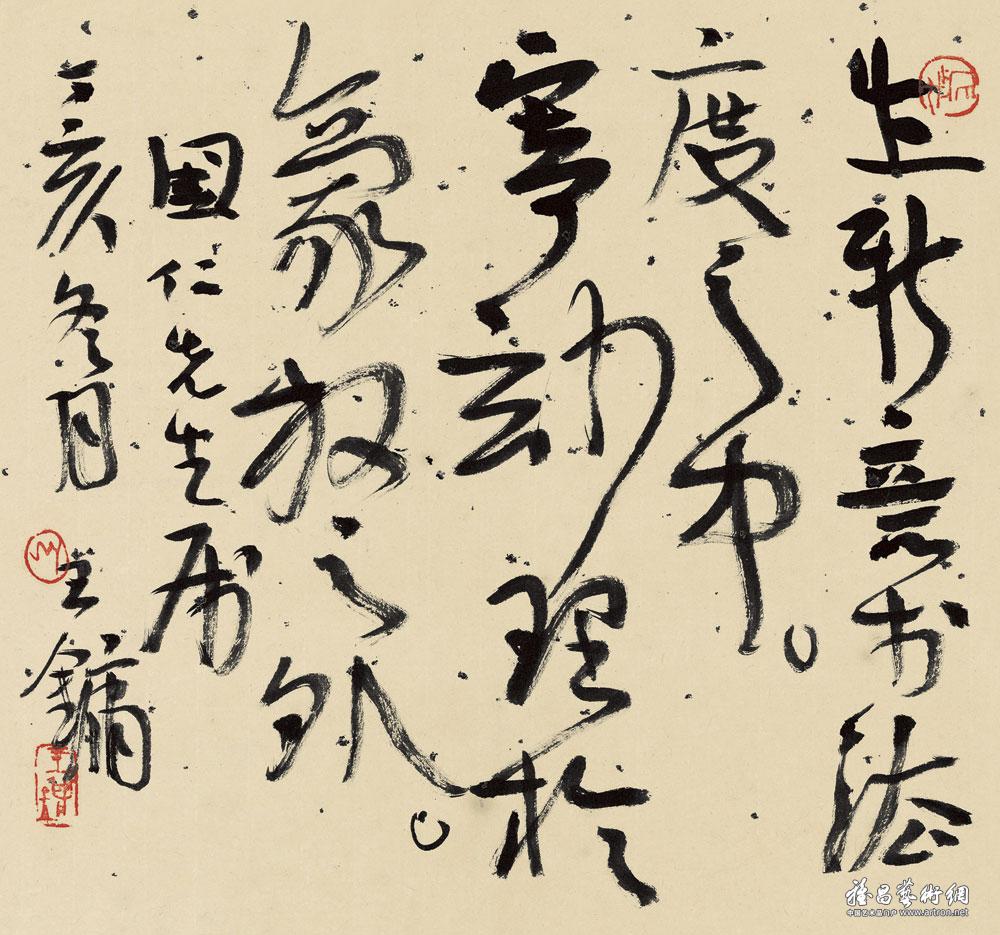 出新意於法
度之中。
寄玅理於
豪放之外。
国仁先生属
亥冬月 王鏞
雅昌藝術網
中国艺术品门户 www.artron.net